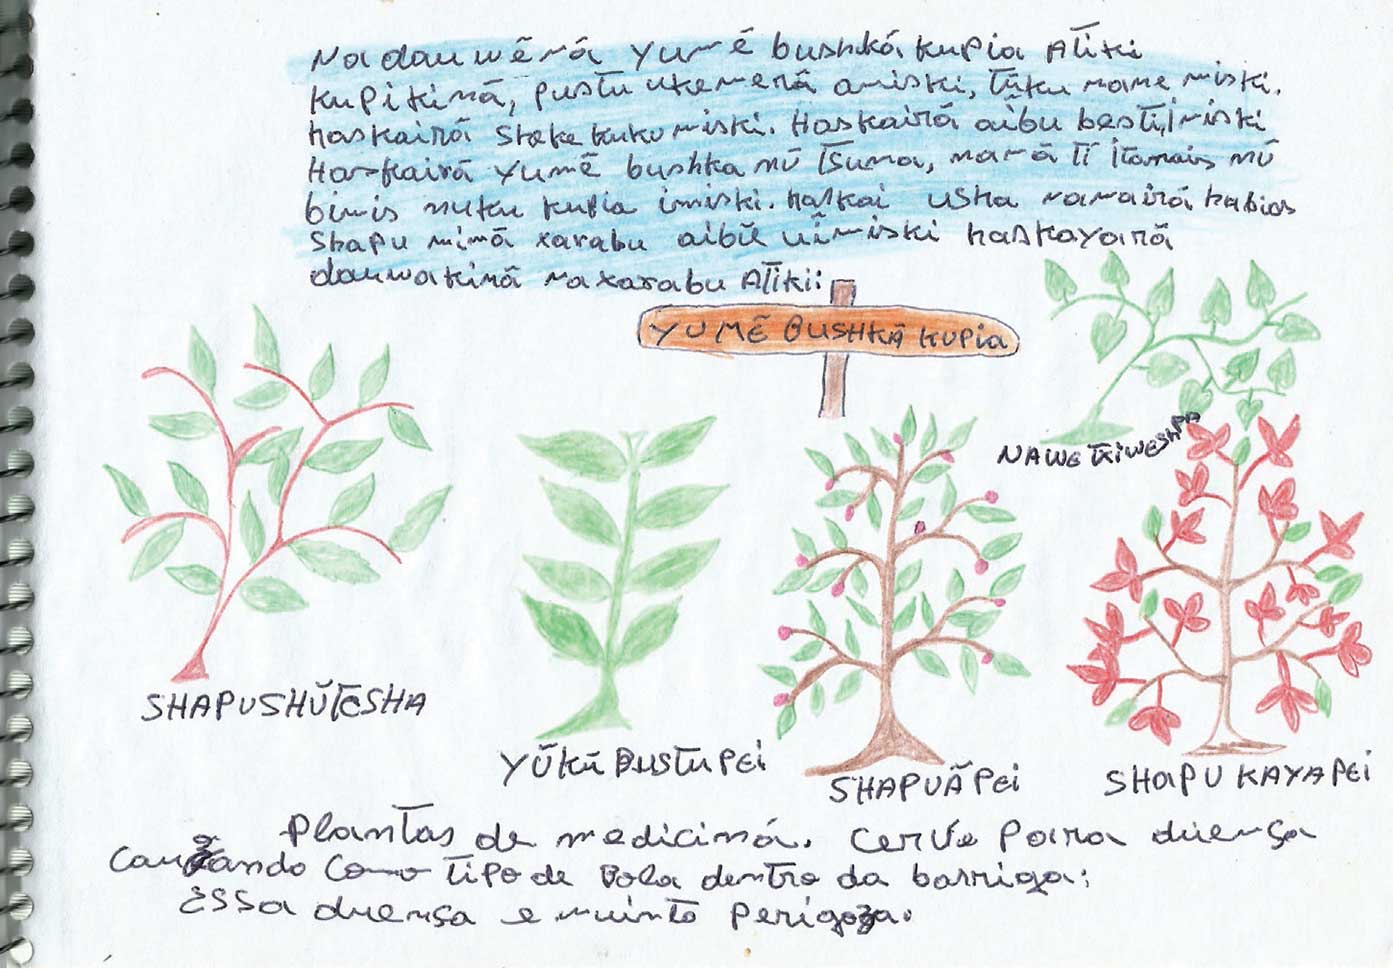 Na dau wẽnã yumẽ bushká kupia Atiki
kupikinã, pustu ukemerã amiski, tũku name miski.
haskairã steke kuku miski. Haskairã aĩbu besti, imiski
Haskairã yumẽ bushka nũ tsuma, mamã ti itamais nũ
bimis nuku kupia imiski. haskai usha namairã habias
Shapu mimã xarabu aibũ uĩmiski haskayarã
dauwakinã na xarabu Atiki:
YUMẼ BUSHKÃ KUPia
NAWE TSIWESHPA
SHAPUSHŨTESHA
YŨKŨ BUSTU PEi
SHAPUÃ PEi
SHaPU KAYA PEi
Plantas de mediciná. Cerve Para duença
cauzando Como tipo de Bola dentro da barriga:
ESSa duença e muinto Perigoza.